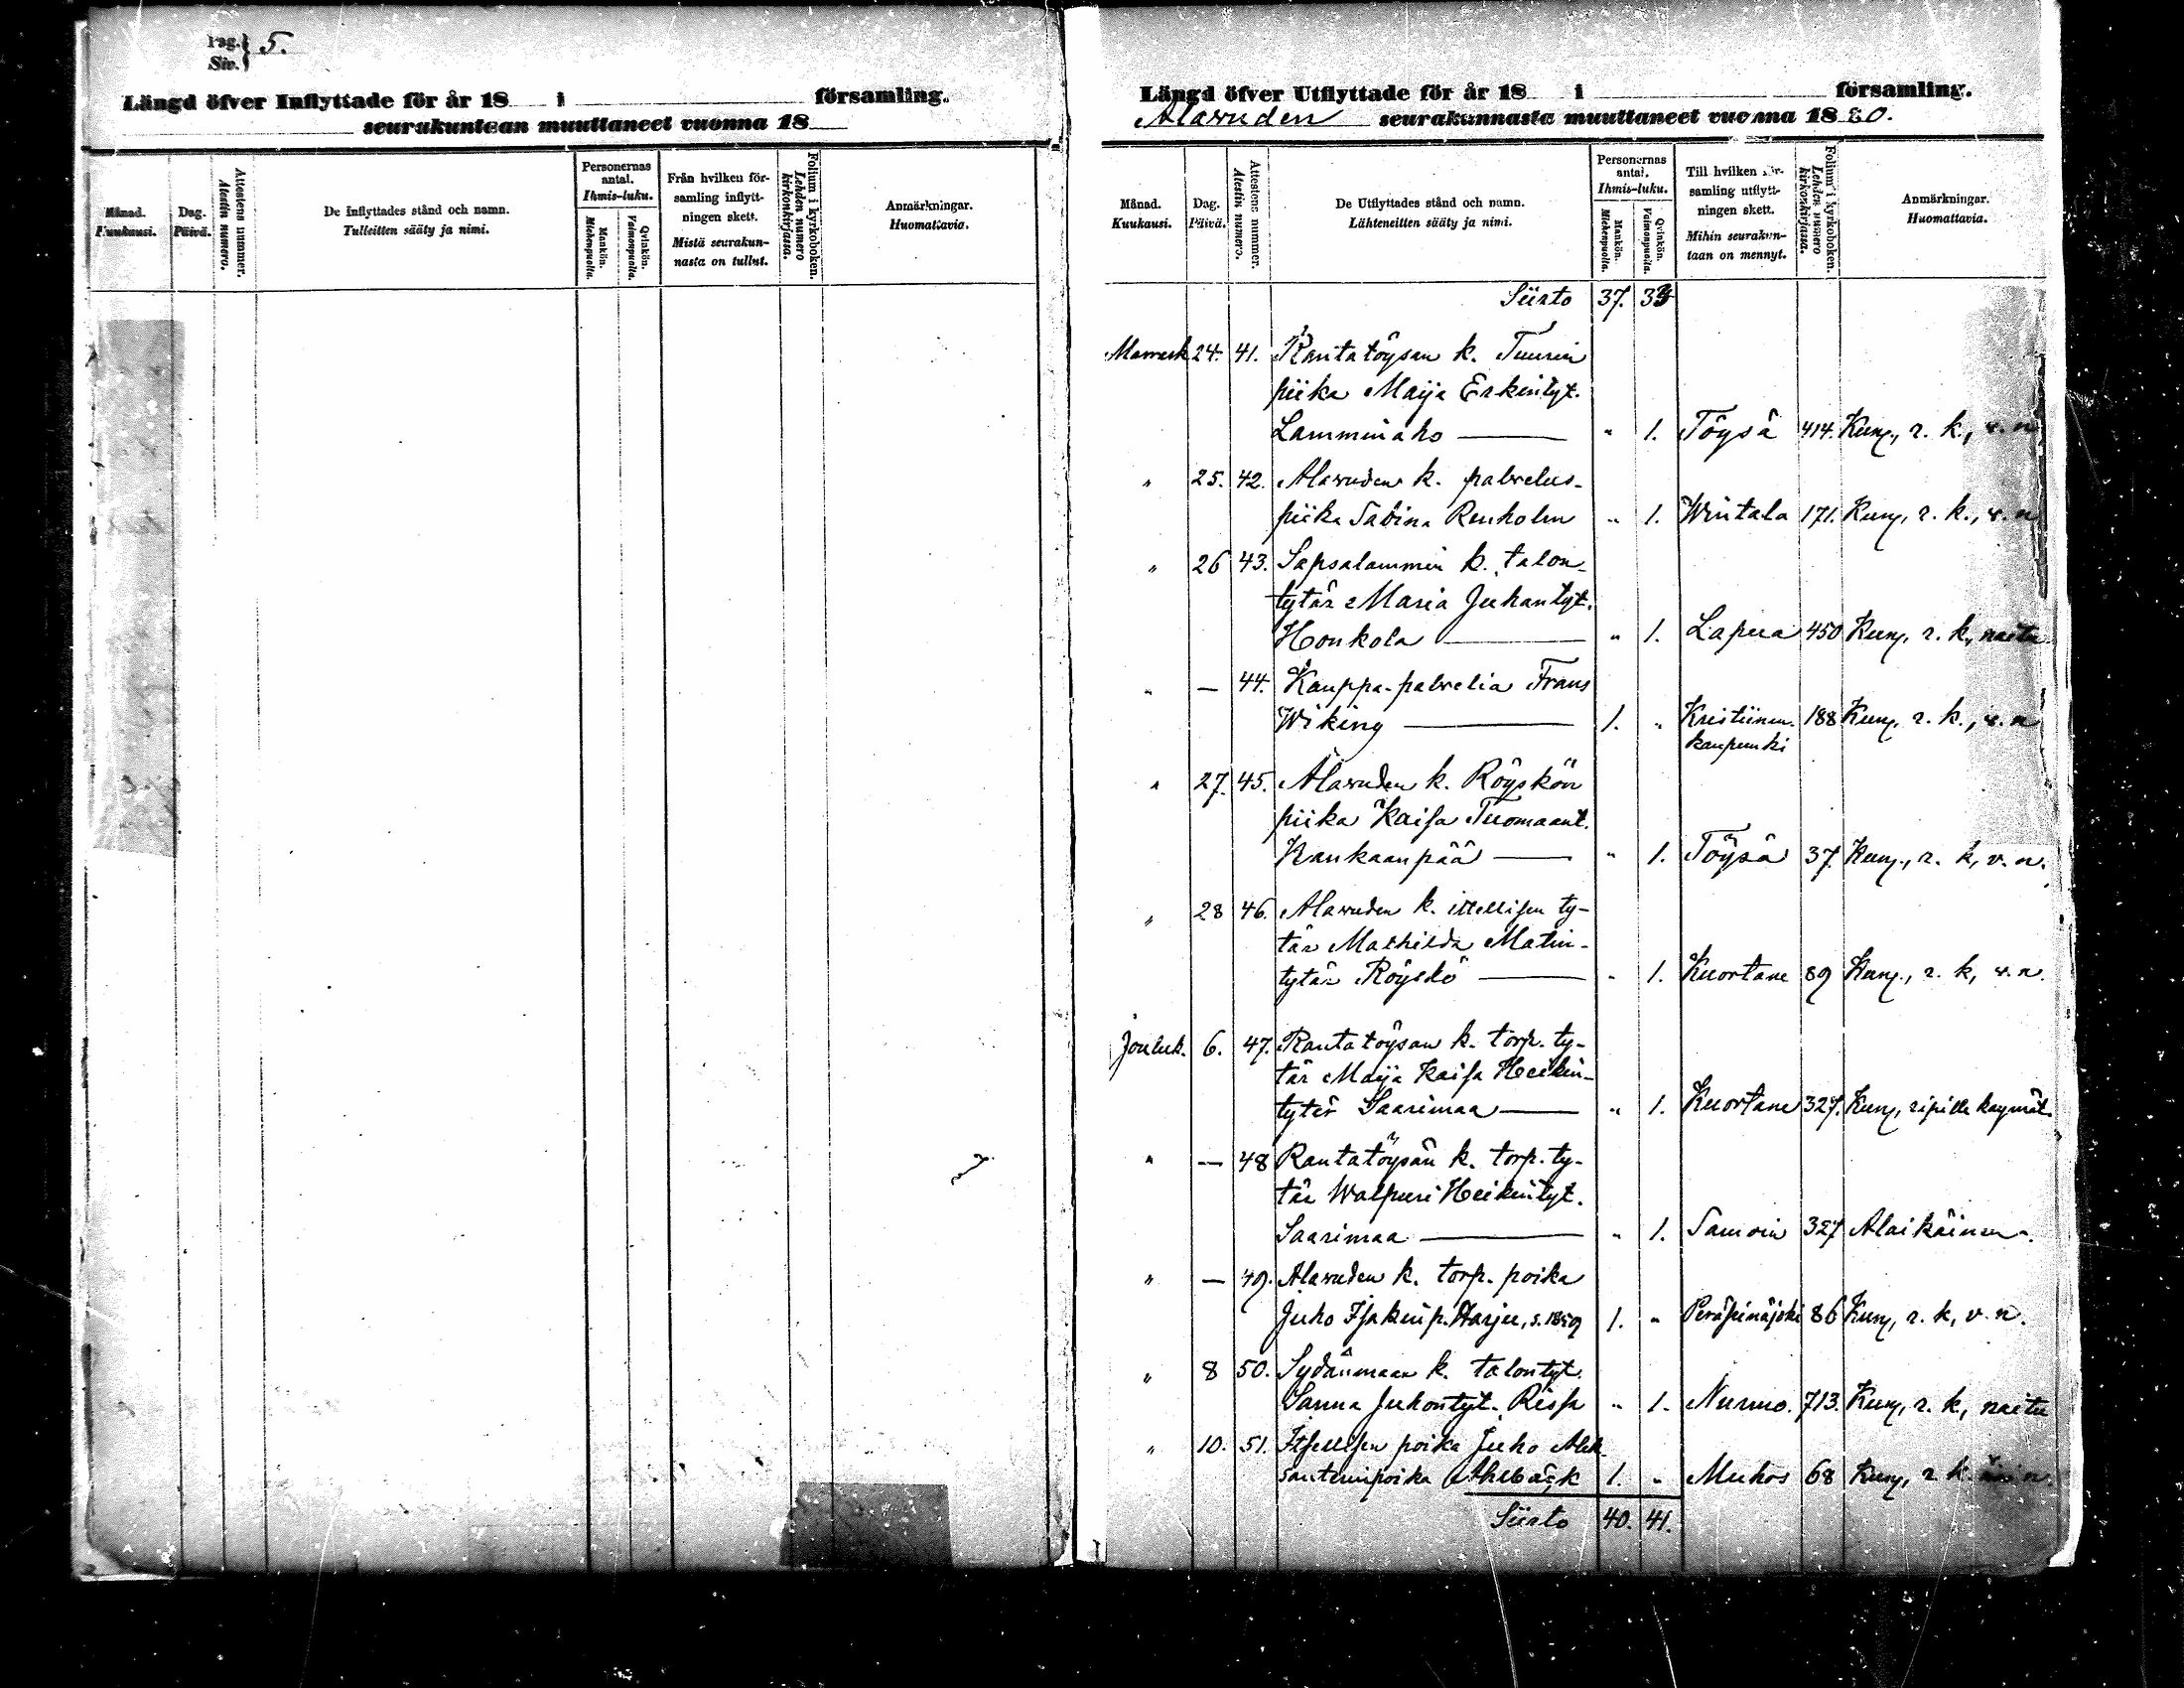 Pag. } 5.
Siv.
Längd öfver Inflyttade för år 18 i församling.
seurakuntaan muuttaneet vuonna 18
Månad. Kuukausi.
Dag. Päivä.
Attestens nummer. Atestin numero.
De Inflyttades stånd och namn.
Tulleitten sääty ja nimi.
Personernas antal.
Ihmis-luku.
Mankön. Miehenpuolia.
Qvinkön. Vaimonpuolia.
Från hvilken för-
samling inflytt-
ningen skett.
Mistä seurakun-
nasta on tullut.
Folium i kyrkoboken.
Lehden numero kirkonkirjassa.
Anmärkningar.
Huomattavia.
Längd öfver Utflyttade för år 18 i församling.
Alavuden seurakunnasta muuttaneet vuonna 1880.
Månad. Kuukausi.
Dag. Päivä.
Attestens nummer. Atestin numero.
De Utflyttades stånd och namn.
Lähteneitten sääty ja nimi.
Personernas antal.
Ihmis-luku.
Mankön. Miehenpuolia.
Qvinkön. Vaimonpuolia.
Till hvilken för-
samling utflytt-
ningen skett.
Mihin seurakun-
taan on mennyt.
Folium i kyrkoboken.
Lehden numero kirkonkirjassa.
Anmärkningar.
Huomattavia.
Siirto 37. 33
Marrask 24. 41. Rantatöysän k. Tuurin
piika Maija Erkintyt.
Lamminaho — " 1. Töysä 414. Kunn., r. k., v. n
" 25. 42. Alavuden k. palvelus-
piika Sabina Renholm " 1. Wirtala 171. Kunn, r. k., v. n
" 26 43. Sapsalammin k. talon-
tytär Maria Juhantyt.
Honkola — " 1. Lapua 450 Kunn, r. k, naitu
" — 44. Kauppa-palvelia Frans
Wiking — 1. " Kristiinan- 188 Kunn, r. k., v. n
kaupunki
" 27. 45. Alavuden k. Röyskön
piika Kaisa Tuomaant.
Kankaanpää — " 1. Töysä 37. Kunn., r. k, v. n.
" 28 46. Alavuden k. itsellisen ty-
tär Mathilda Matin-
tytär Röyskö — " 1. Kuortane 89 Kunn., r. k, v. n.
Jouluk. 6. 47. Rantatöysän k. torp. ty-
tär Maija Kaisa Heikin-
tytär Saarimaa — " 1. Kuortane 327. Kunn, ripille käymät.
" — 48 Rantatöysän k. torp. ty-
tär Walpuri Heikintyt.
Saarimaa — " 1. Samoin 327 Alaikäinen.
" — 49. Alavuden k. torp. poika
Juho Isakinp. Harju, s. 1859 1. " Peräseinäjoki 86 Kunn, r. k, v. n.
" 8 50. Sydänmaan k. talontyt.
Sanna Juhontyt. Rissa " 1. Nurmo. 713. Kunn, r. k, naitu
" 10. 51. Itsellisen poika Juho Alek
santerinpoika Ahlbäck 1. " Muhos 68 Kunn, r. k. n.
Siirto 40. 41.